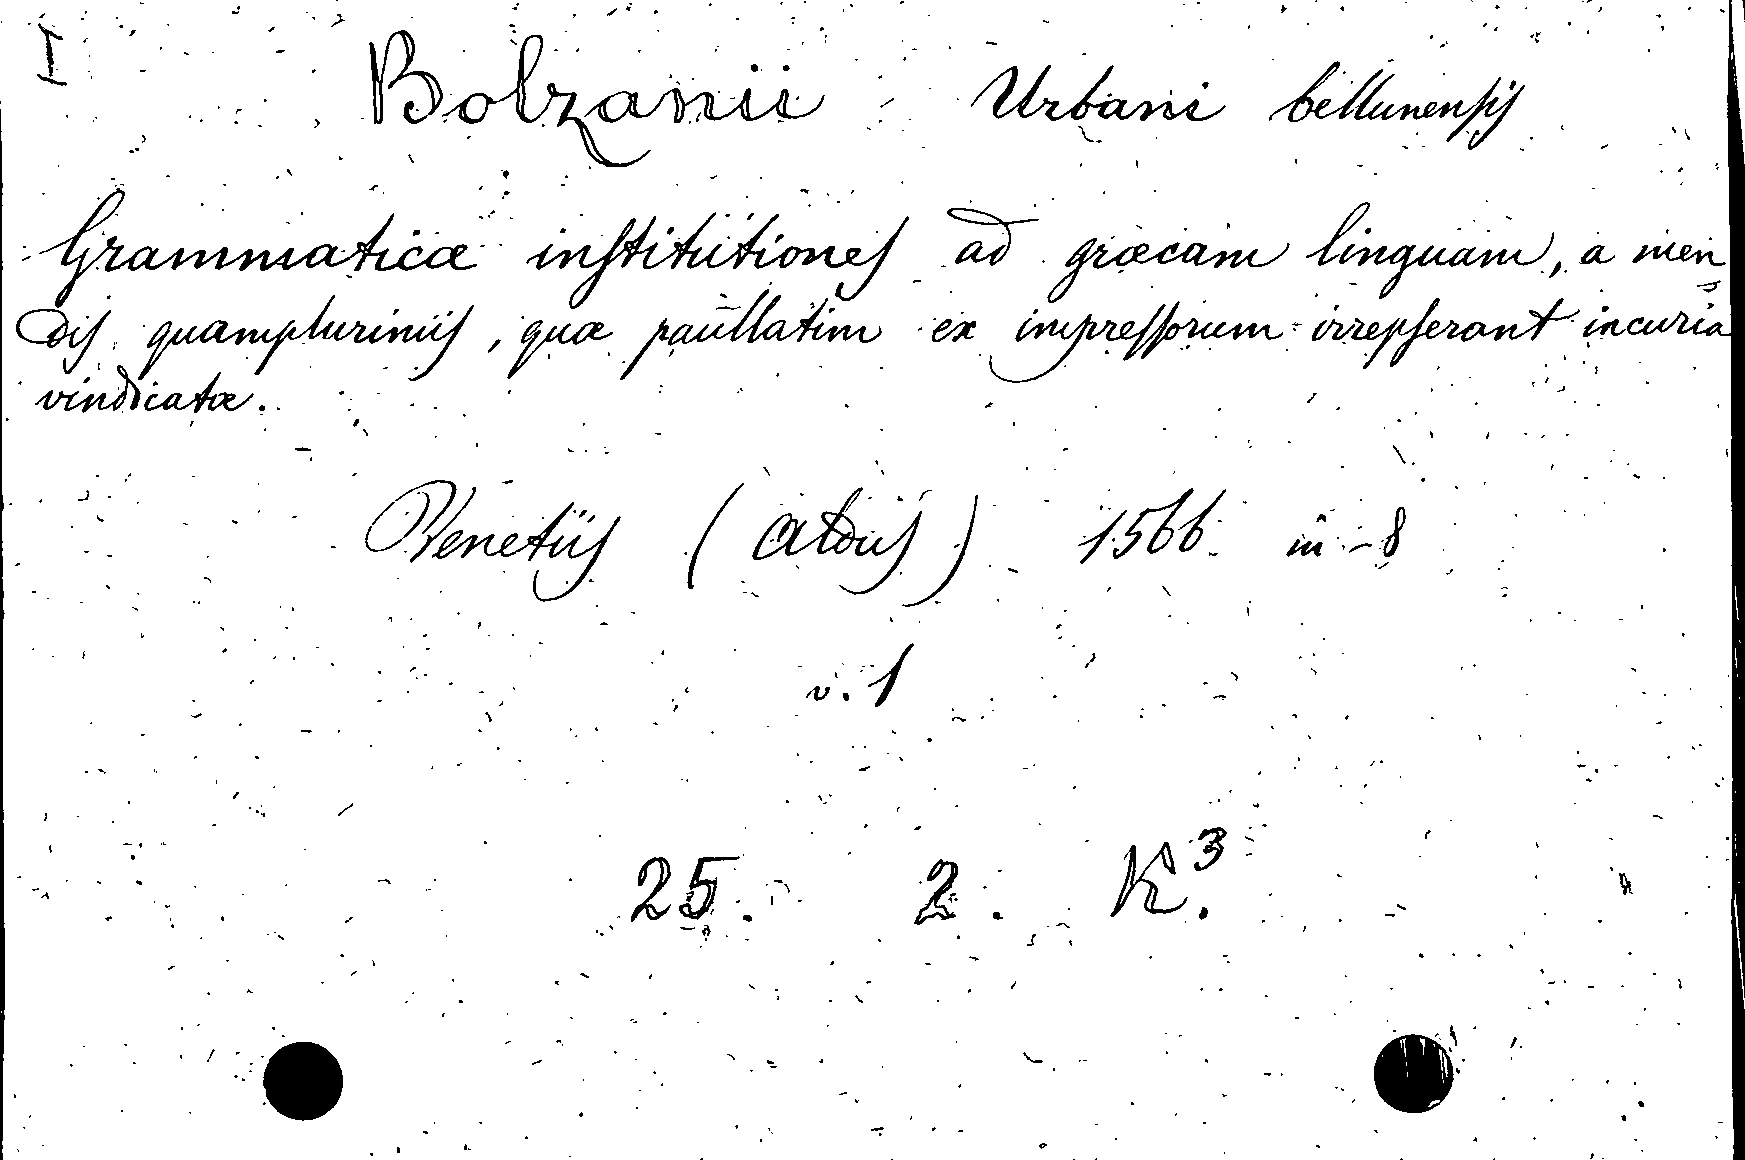 I
Bolzanii Urbani bellunensis
Grammaticæ institutiones ad græcam linguam, a men
dis quamplurimis, quæ paullatim ex impressorum irrepserant incuria
vindicatæ.
Venetiis (Aldus) 1566. in-8
v. 1
25. 2. K³.